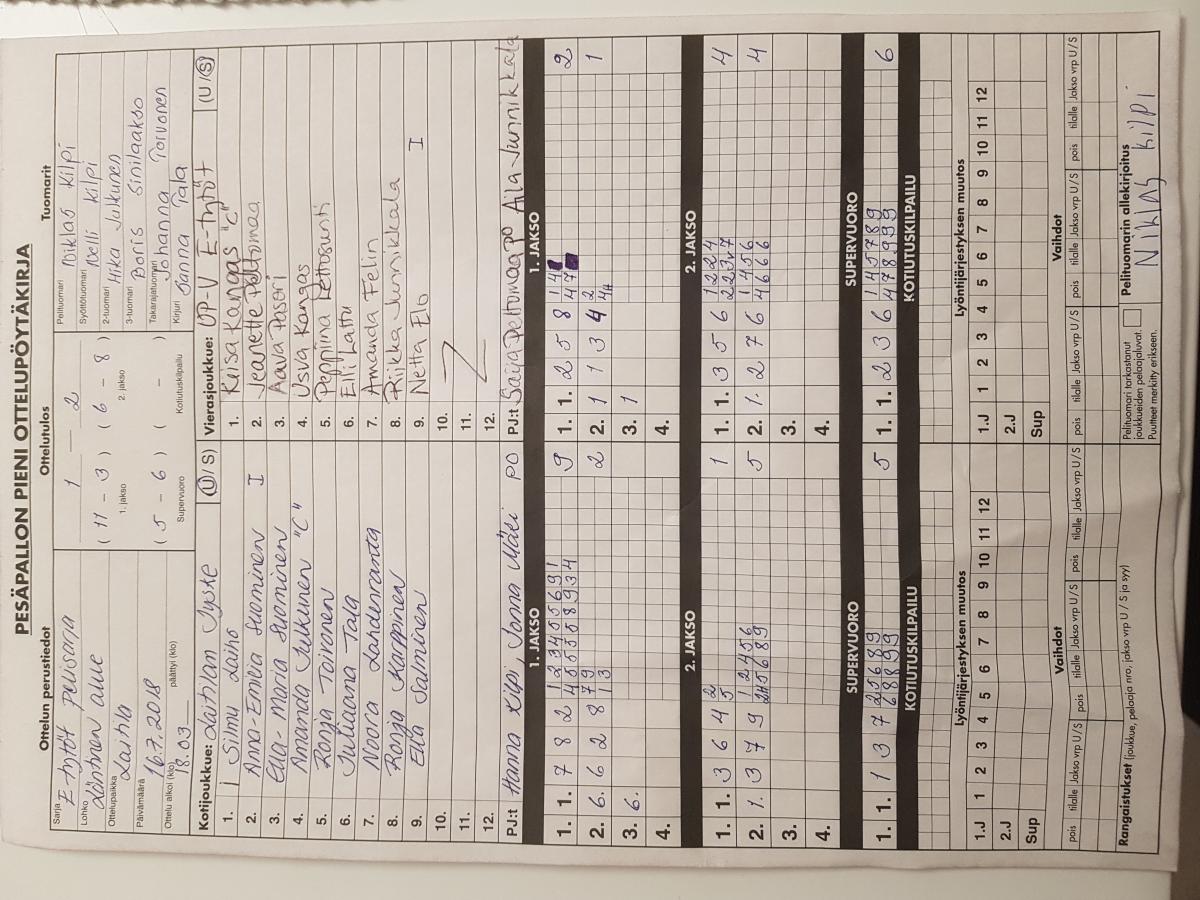 PESÄPALLON PIENI OTTELUPÖYTÄKIRJA
Ottelun perustiedot
Sarja
E-tytöt pelisarja
Lohko
Läntinen alue
Ottelupaikka
Laitila
Päivämäärä
16.7.2018
Ottelu alkoi (klo)
18.03
päättyi (klo)
Ottelutulos
1 - 2
(11 - 3) (6 - 8)
1. jakso 2. jakso
(5 - 6) ( - )
Supervuoro Kotiutuskilpailu
Tuomarit
Pelituomari Niklas Kilpi
Syöttötuomari Nelli Kilpi
2-tuomari Hika Julkunen
3-tuomari Boris Sinilaakso
Takarajatuomari Johanna Torvonen
Kirjuri Sanna Tala
Kotijoukkue: Laitilan Jyske (U/S)
1. Simu Laiho
2. Anna-Emilia Suominen I
3. Ella-Maria Suominen
4. Amanda Julkunen "C"
5. Ronja Toivonen
6. Juliaana Tala
7. Noora Lahdenranta
8. Ronja Karppinen
9. Ella Salminen
10.
11.
12.
PJ:t Hanna Kilpi, Jonna Mäki PO
Vierasjoukkue: UP-V E-tytöt (U/S)
1. Kiisa Kangas "C"
2. Jeanette Peltomaa
3. Aava Pasori
4. Usva Kangas
5. Peppiina Lettosunti
6. Elli Lattu
7. Amanda Felin
8. Riikka Junnikkala
9. Netta Elo I
10.
11.
12.
PJ:t Saija Peltomaa PO Aila Junnikkala
1. JAKSO
1. 1. 7 8 2 9
1 2 3 4 5 5 6 9 1
4 5 5 5 8 8 9 3 4
2. 6. 6 2 8 2
7 9
1 3
3. 6.
4.
1. JAKSO
1. 1. 2 5 8 2
1 4
4 7
2. 1 1 3 4 1
2
4H
3. 1
4.
2. JAKSO
1. 1. 3 6 4 1
2
5
2. 1. 3 7 9 5
1 2 4 5 6
2H 5 6 8 9
3.
4.
2. JAKSO
1. 1. 3 5 6 4
1 2 2 4
2 2 3 7
2. 1. 2 7 6 4
1 4 5 6
4 6 6 6
3.
4.
SUPERVUORO
1. 1. 1 3 7 5
2 5 6 8 9
6 8 8 9 9
SUPERVUORO
1. 1. 2 3 6 6
1 4 5 7 8 9
4 7 8 9 9 9
KOTIUTUSKILPAILU
KOTIUTUSKILPAILU
Lyöntijärjestyksen muutos
1.J 1 2 3 4 5 6 7 8 9 10 11 12
2.J
Sup
Lyöntijärjestyksen muutos
1.J 1 2 3 4 5 6 7 8 9 10 11 12
2.J
Sup
Vaihdot
pois tilalle Jakso vrp U/S pois tilalle Jakso vrp U/S pois tilalle Jakso vrp U/S
Vaihdot
pois tilalle Jakso vrp U/S pois tilalle Jakso vrp U/S pois tilalle Jakso vrp U/S
Rangaistukset (joukkue, pelaaja nro, jakso vrp U / S ja syy)
Pelituomari tarkastanut
joukkueiden pelaajaluvat.
Puutteet merkitty erikseen.
Pelituomarin allekirjoitus
Niklas Kilpi